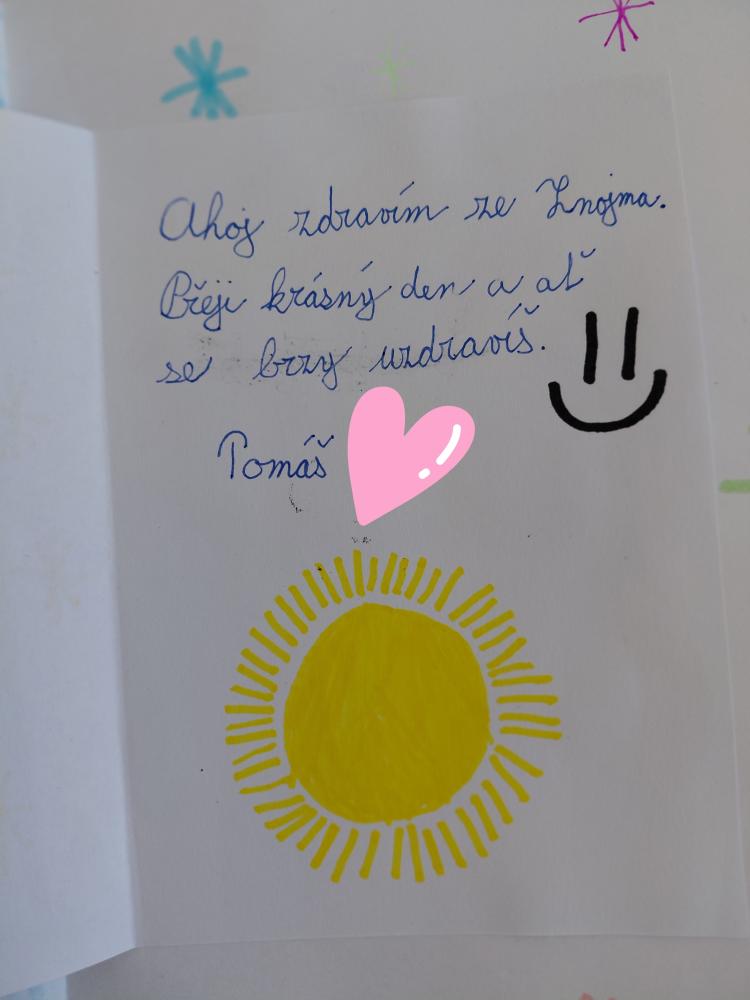 Ahoj zdravím ze Znojma.
Přeji krásný den a ať
se brzy uzdravíš.
Tomáš